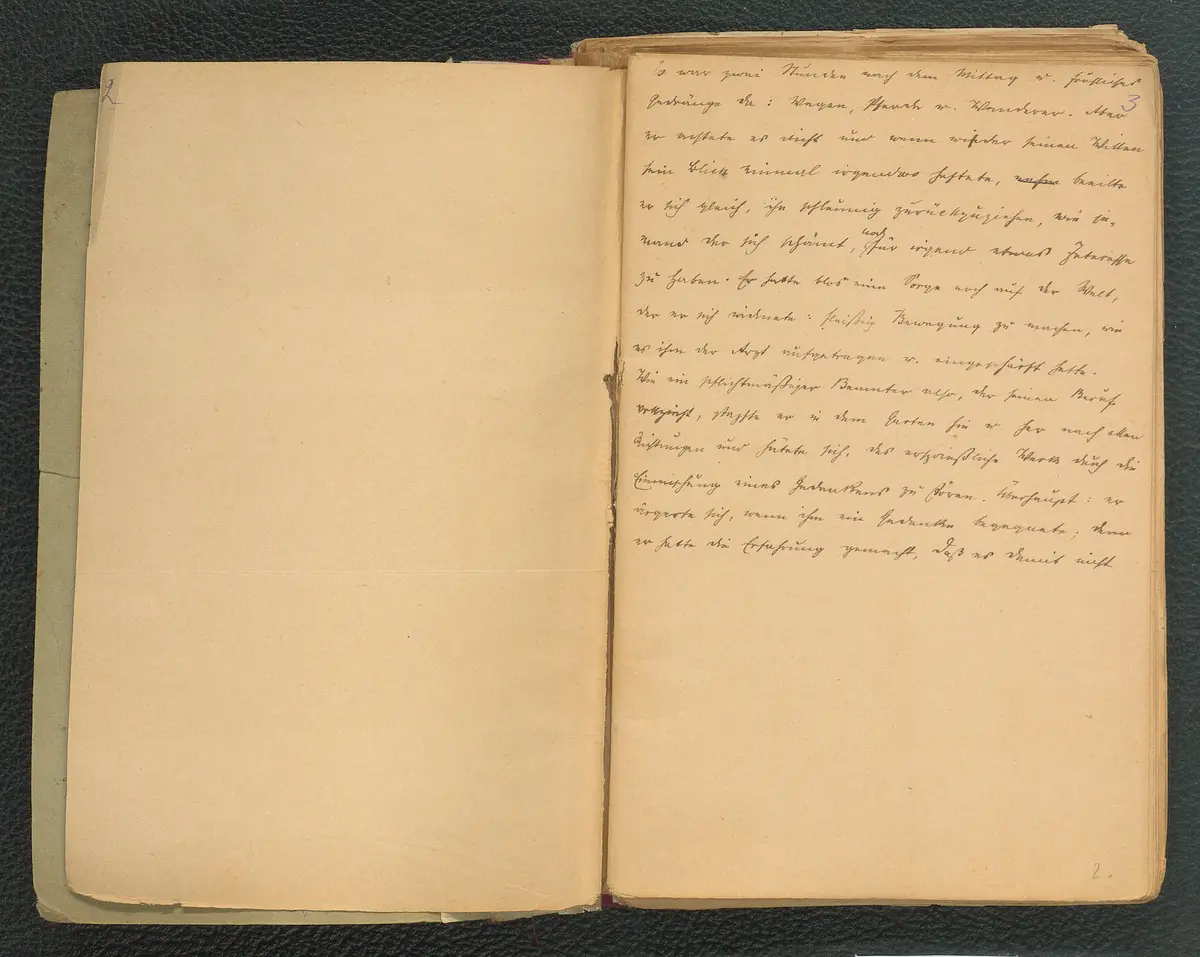 2
3
Es war zwei Stunden nach dem Mittag u. fröhliches
Gedränge da: Wagen, Pferde u. Wanderer. Aber
er achtete es nicht und wenn wider seinen Willen
sein Blick einmal irgendwo haftete, beeilte
er sich gleich, ihn schleunig zurückzuziehen, wie je-
mand der sich schämt, noch für irgend etwas Interesse
zu haben. Er hatte blos eine Sorge noch auf der Welt,
der er sich widmete: fleißig Bewegung zu machen, wie
es ihm der Arzt aufgetragen u. eingeschärft hatte.
Wie ein pflichtmäßiger Beamter also, der seinen Beruf
vollzieht, stapfte er in dem Garten hin u. her nach allen
Richtungen und hütete sich, das ersprießliche Werk durch die
Einmischung eines Gedankens zu stören. Überhaupt: er
ärgerte sich, wenn ihm ein Gedanke begegnete; denn
er hatte die Erfahrung gemacht, daß es damit nicht
2.